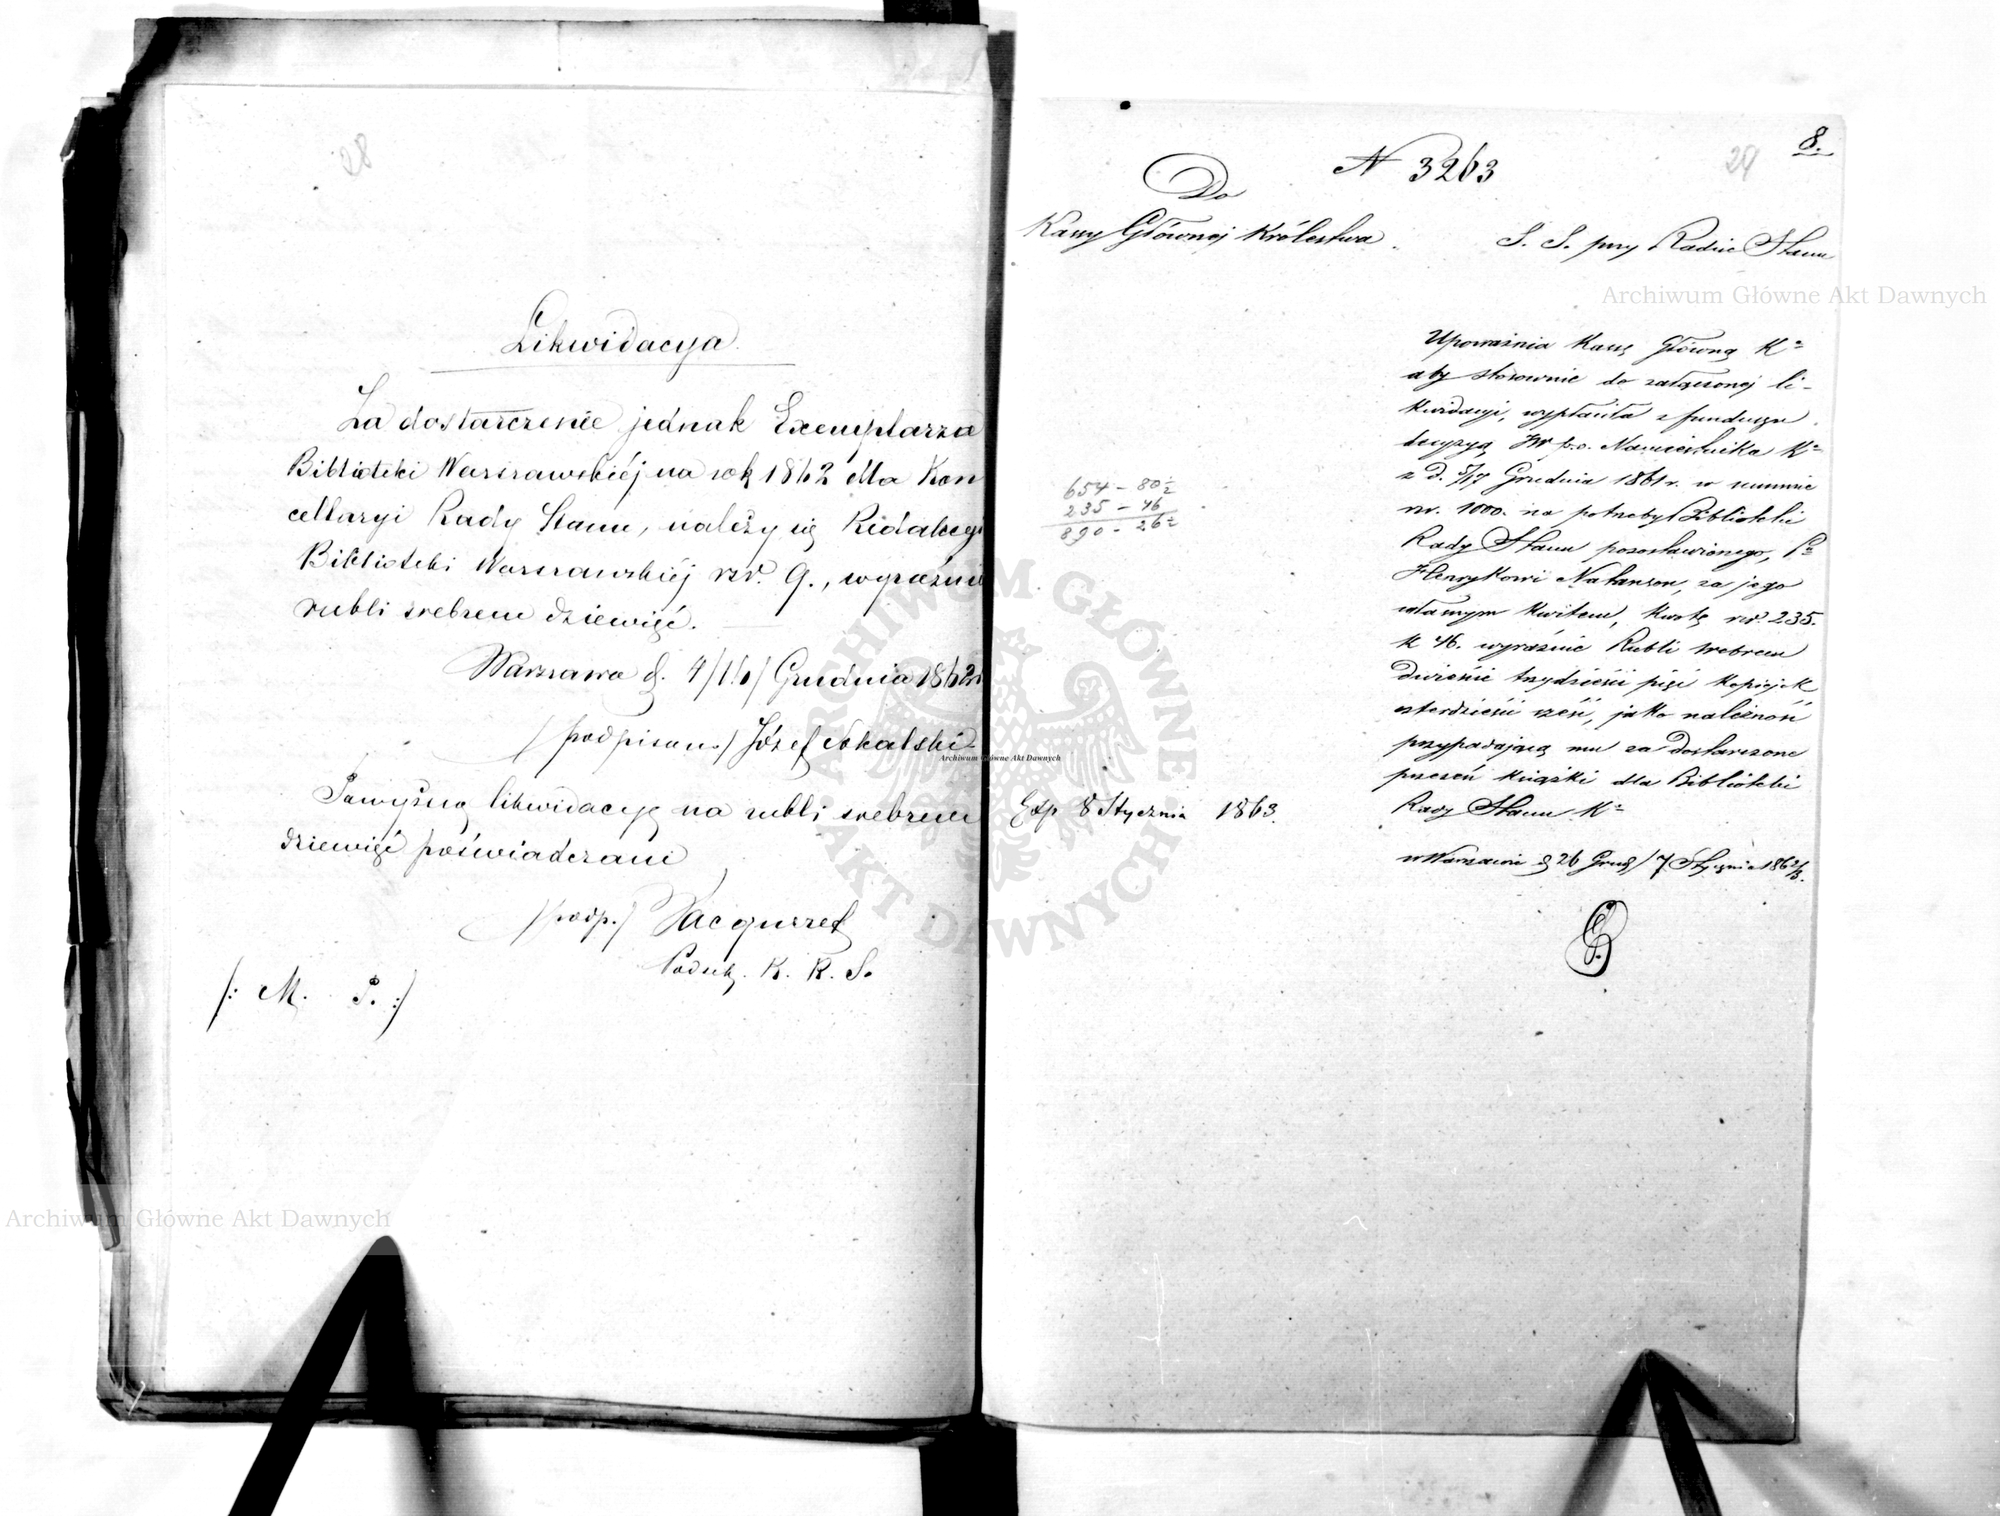 28
Likwidacya.
Za dostarczenie jednak Exemplarza
Biblioteki Warszawskiéj na rok 1862 dla Kan
cellaryi Rady Stanu, należy się Redakcyi
Biblioteki Warszawskiéj rsr. 9., wyraźnie
rubli srebrem dziewięć.
Warszawa d. 4/16/ Grudnia 1862 r.
/podpisano/ Józef Sokalski
Powyższą likwidacyę na rubli srebrem
dziewięć poświadczam
/podp./
K. R. S.
/: M. P. :/
8.
29
N 3263
Do
Kassy Głównej Królestwa
S. S. przy Radzie Stanu
Upoważnia Kassę Główną Kª
aby stosownie do załączonej li-
kwidacyi, wypłaciła z funduszu
decyzyą JW p.o. Namiestnika Kª
z d. 5/17 Grudnia 1861 r. w summie
rsr. 1000. na potrzeby Biblioteki
Rady Stanu pozostawionego, Pª
Henrykowi Natanson, za jego
własnym kwitem, kwotę rsr. 235.
k 46. wyraźnie Rubli srebrem
dwieście trzydzieści pięć kopiejek
czterdzieści sześć, jako należność
przypadającą mu za dostarczone
przezeń książki dla Biblioteki
Rady Stanu Kª
w Warszawie d 26 Grud/7 Stycznia 1862/3.
654 - 80½
235 - 46
890 - 26½
Exp 8 Stycznia 1863.
Archiwum Główne Akt Dawnych
Archiwum Główne Akt Dawnych
Archiwum Główne Akt Dawnych
ARCHIWUM GŁÓWNE AKT DAWNYCH